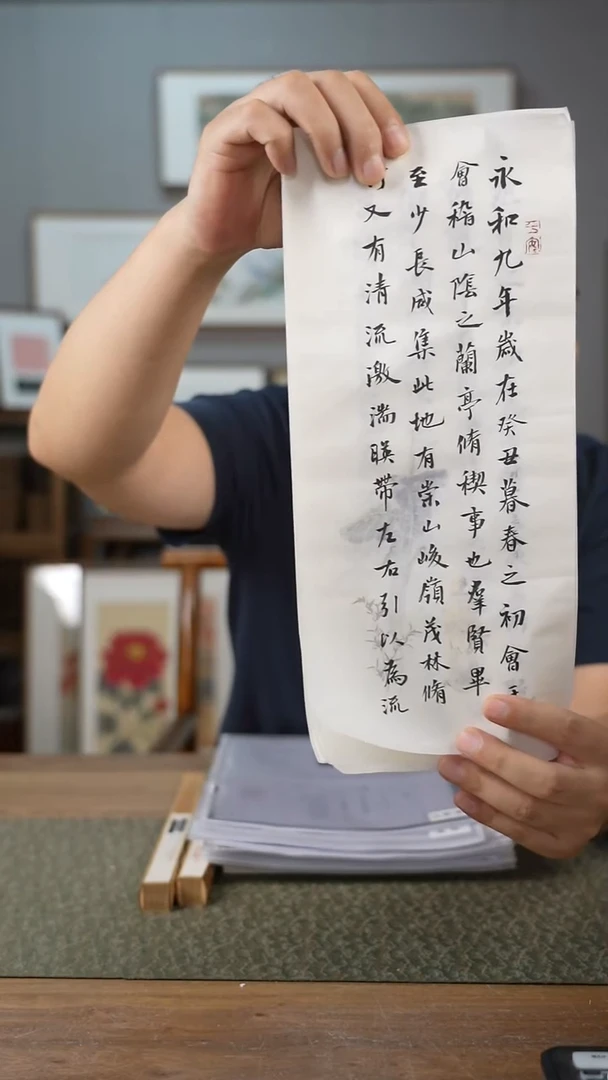 永和九年歲在癸丑暮春之初會
會稽山陰之蘭亭脩稧事也羣賢畢
至少長咸集此地有崇山峻嶺茂林脩
又有清流激湍暎帶左右引以為流